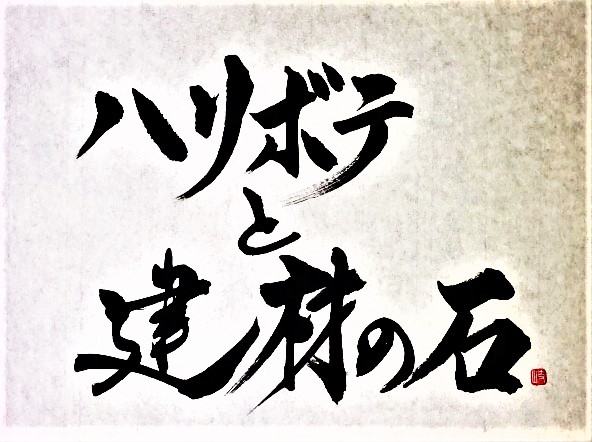 ハリボテ
と
建材の石